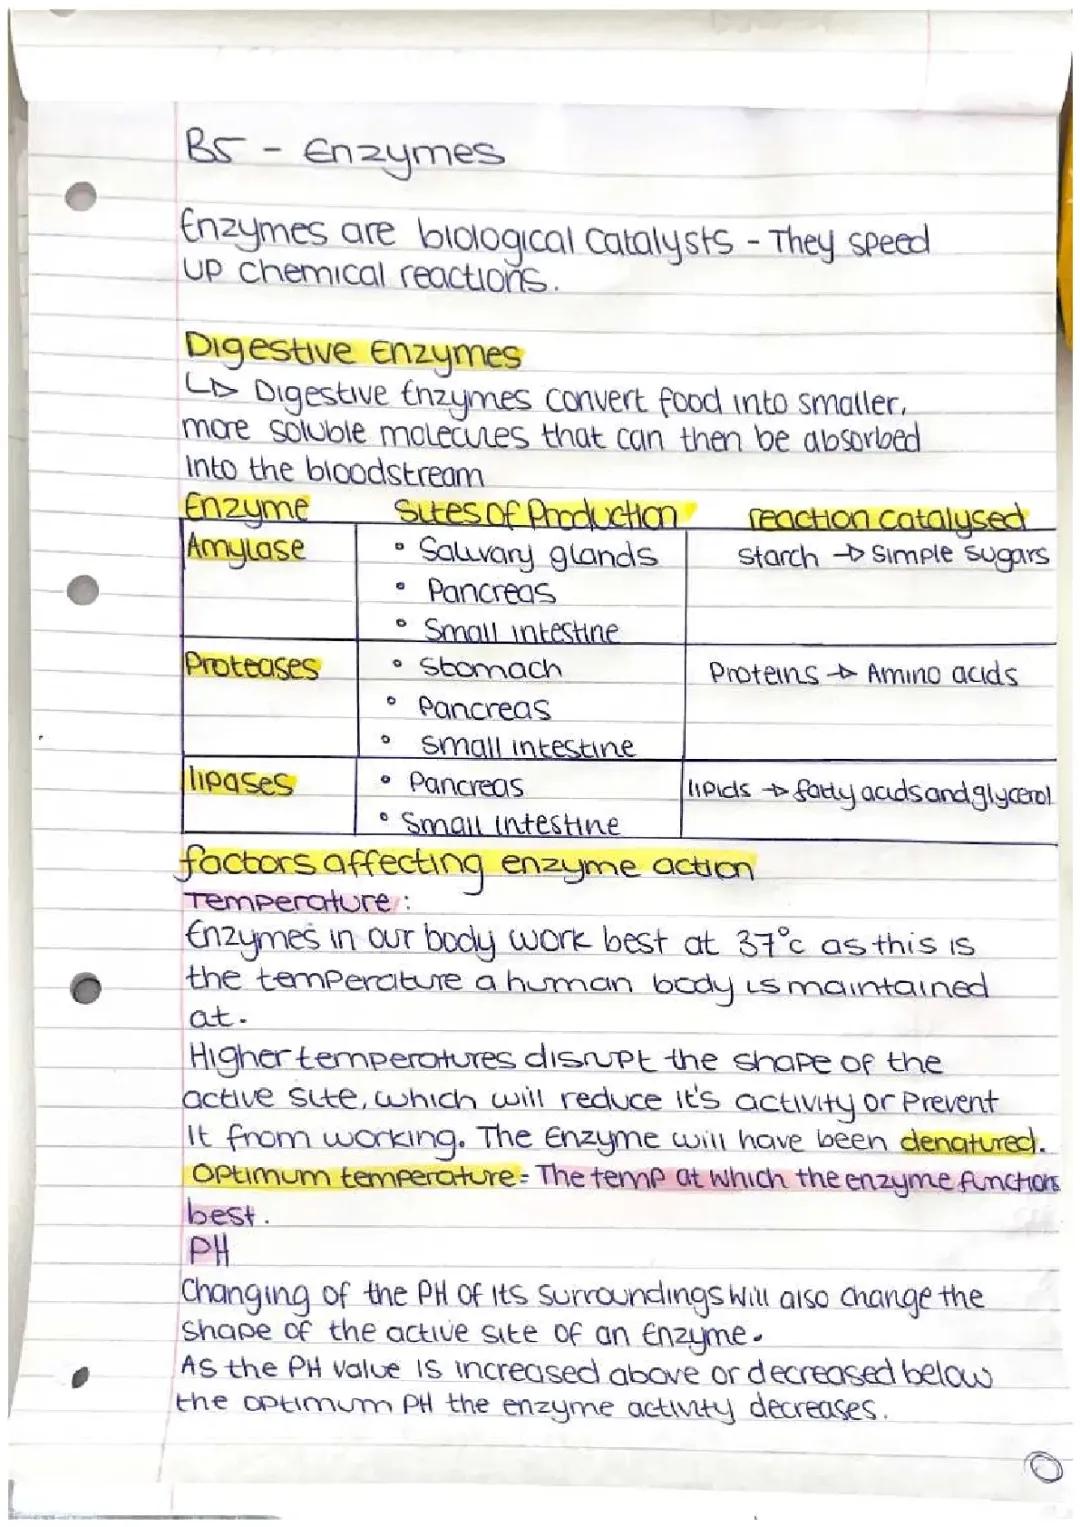 B5 - Enzymes
Enzymes are biological catalysts - They speed
up chemical reactions.
Digestive Enzymes
↳ Digestive Enzymes convert food into smaller,
more soluble molecules that can then be absorbed
into the bloodstream
Enzyme Sites of Production reaction catalysed
Amylase • Salivary glands starch → Simple sugars
• Pancreas
• Small intestine
Proteases • Stomach Proteins → Amino acids
• Pancreas
• Small intestine
lipases • Pancreas lipids → fatty acids and glycerol
• Small intestine
factors affecting enzyme action
Temperature:
Enzymes in our body work best at 37°c as this is
the temperature a human body is maintained
at.
Higher temperatures disrupt the shape of the
active site, which will reduce it's activity or prevent
it from working. The Enzyme will have been denatured.
Optimum temperature= The temp at which the enzyme functions
best.
PH
Changing of the PH of its surroundings will also change the
shape of the active site of an Enzyme.
As the PH value is increased above or decreased below
the optimum PH the enzyme activity decreases.